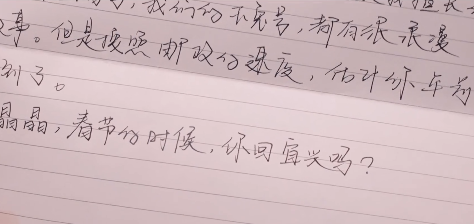 我们的不完号,都有很浪漫
事。但是按照邮政的速度,估计你年前
到了。
晶晶,春节的时候,你回宜兴吗?